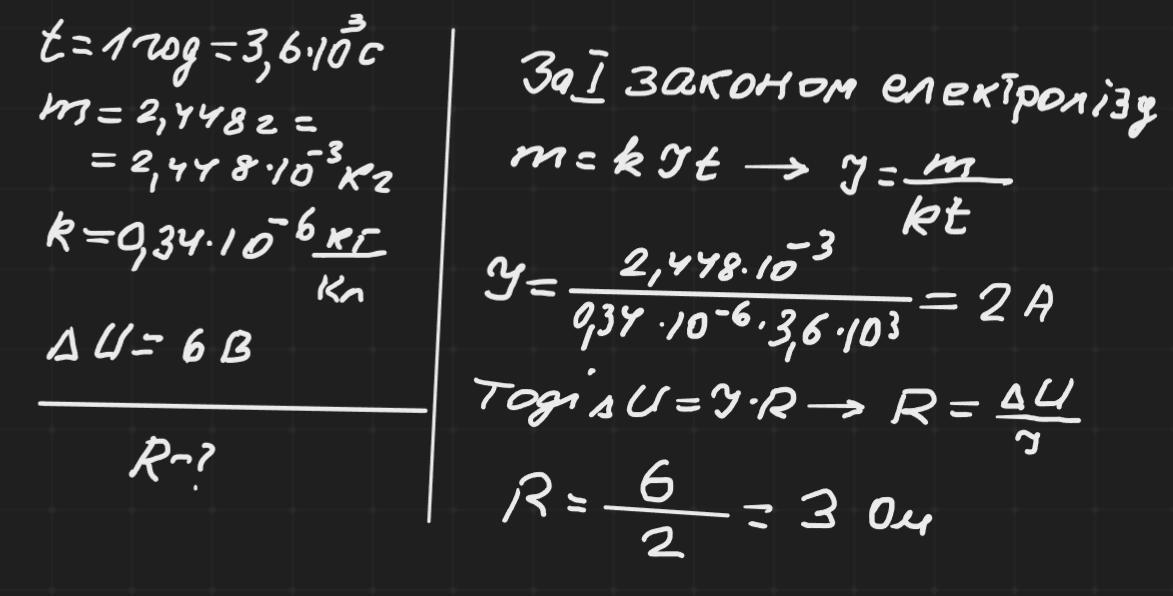 t=1год=3,6·10³с
m=2,448г=
=2,448·10⁻³кг
k=0,34·10⁻⁶ кг/Кл
ΔU=6В
R-?
За I законом електролізу
m=kIt → I=m/kt
I=2,448·10⁻³/0,34·10⁻⁶·3,6·10³=2А
Тоді ΔU=I·R → R=ΔU/I
R=6/2=3 Ом